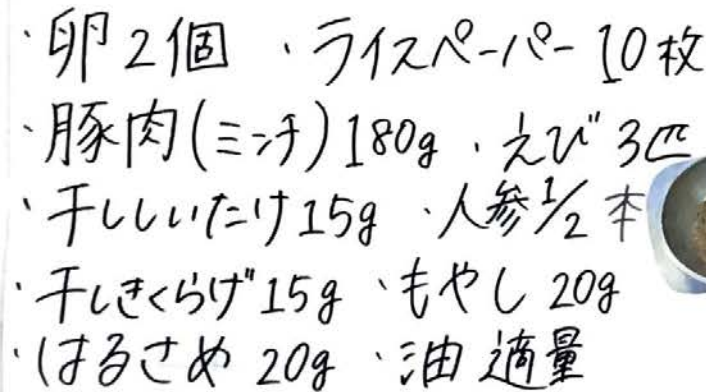 ・卵2個 ・ライスペーパー10枚
・豚肉(ミンチ)180g ・えび3匹
・干ししいたけ15g ・人参1/2本
・干しきくらげ15g ・もやし20g
・はるさめ20g ・油 適量